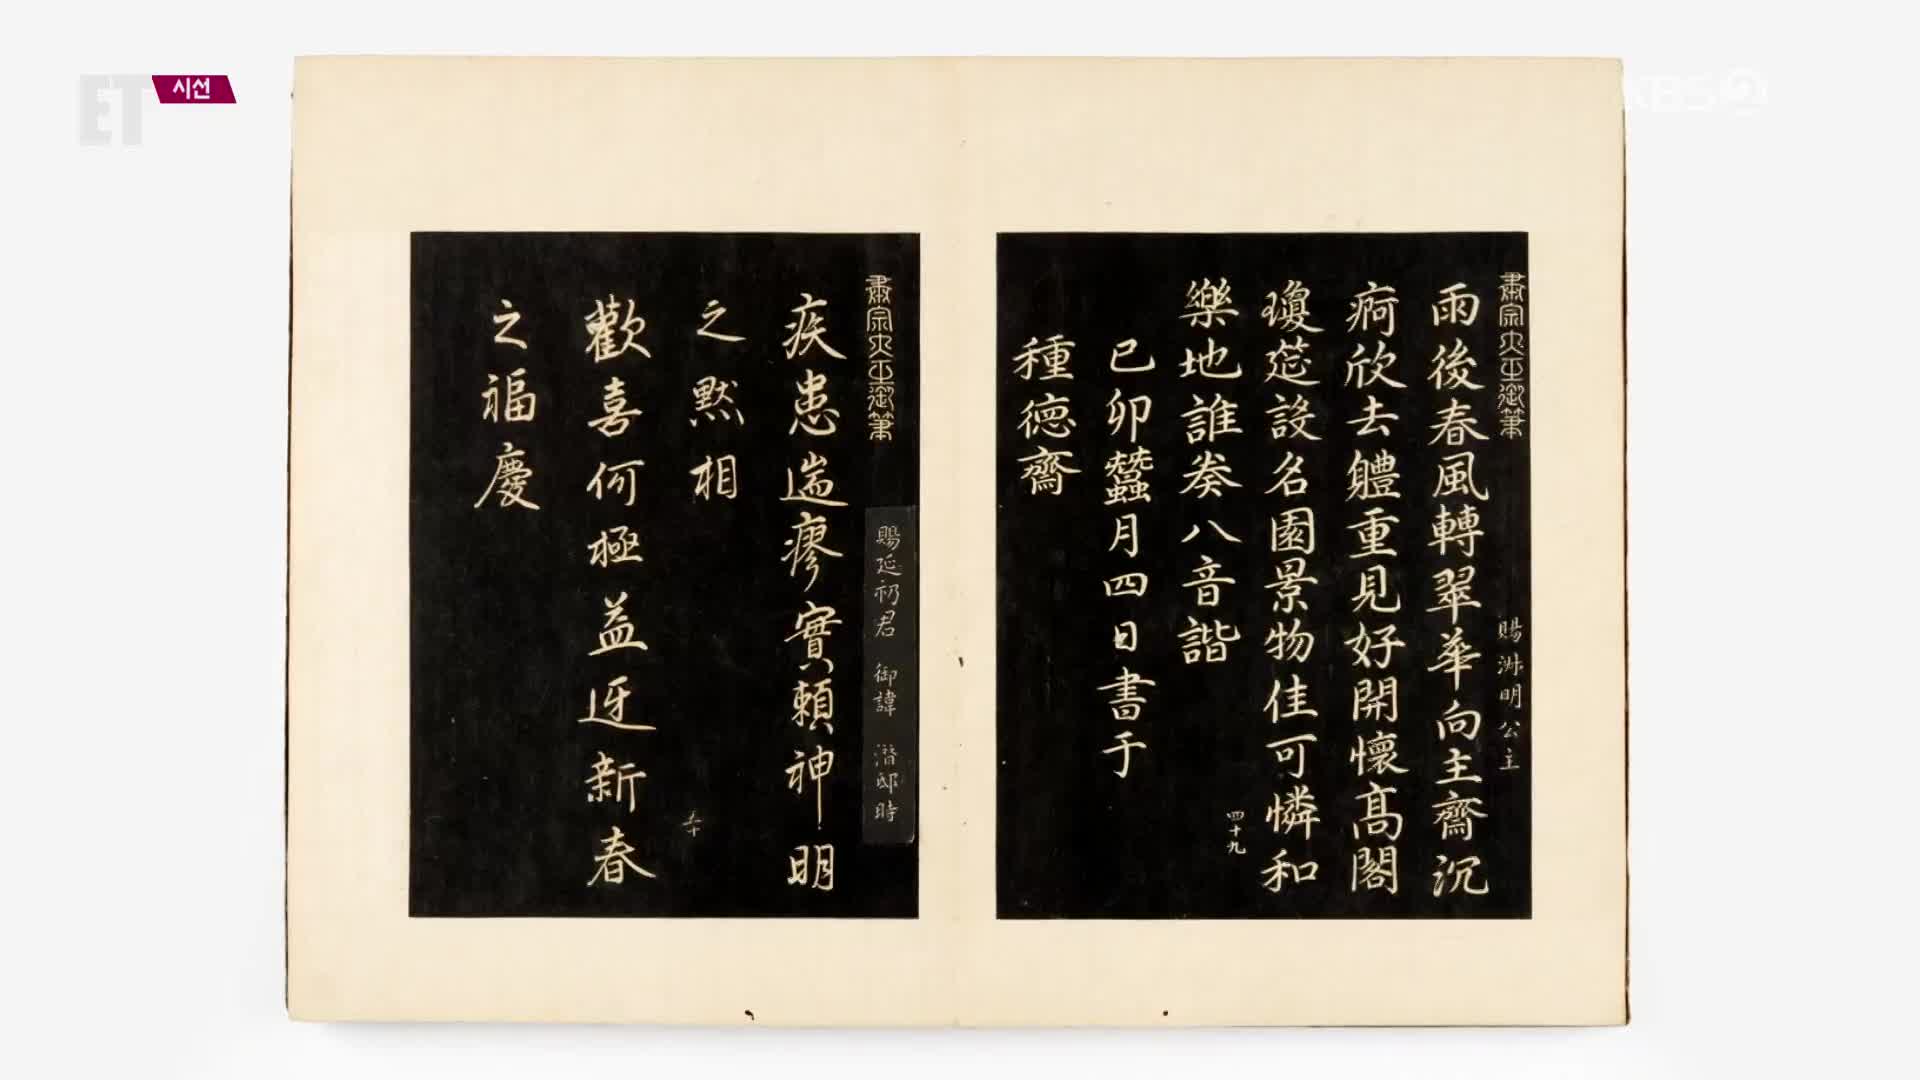 ET 시선
KBS2
肅宗大王御筆
賜淑明公主
雨後春風轉翠華向主齋沉
痾欣去體重見好開懷高閣
瓊莚設名園景物佳可憐和
樂地誰奏八音諧
四十九
己卯蠶月四日書于
種德齋
肅宗大王御筆
賜延礽君 御諱 潛邸時
疾患遄瘳實賴神明
之黙相
五十
歡喜何極益迓新春
之福慶